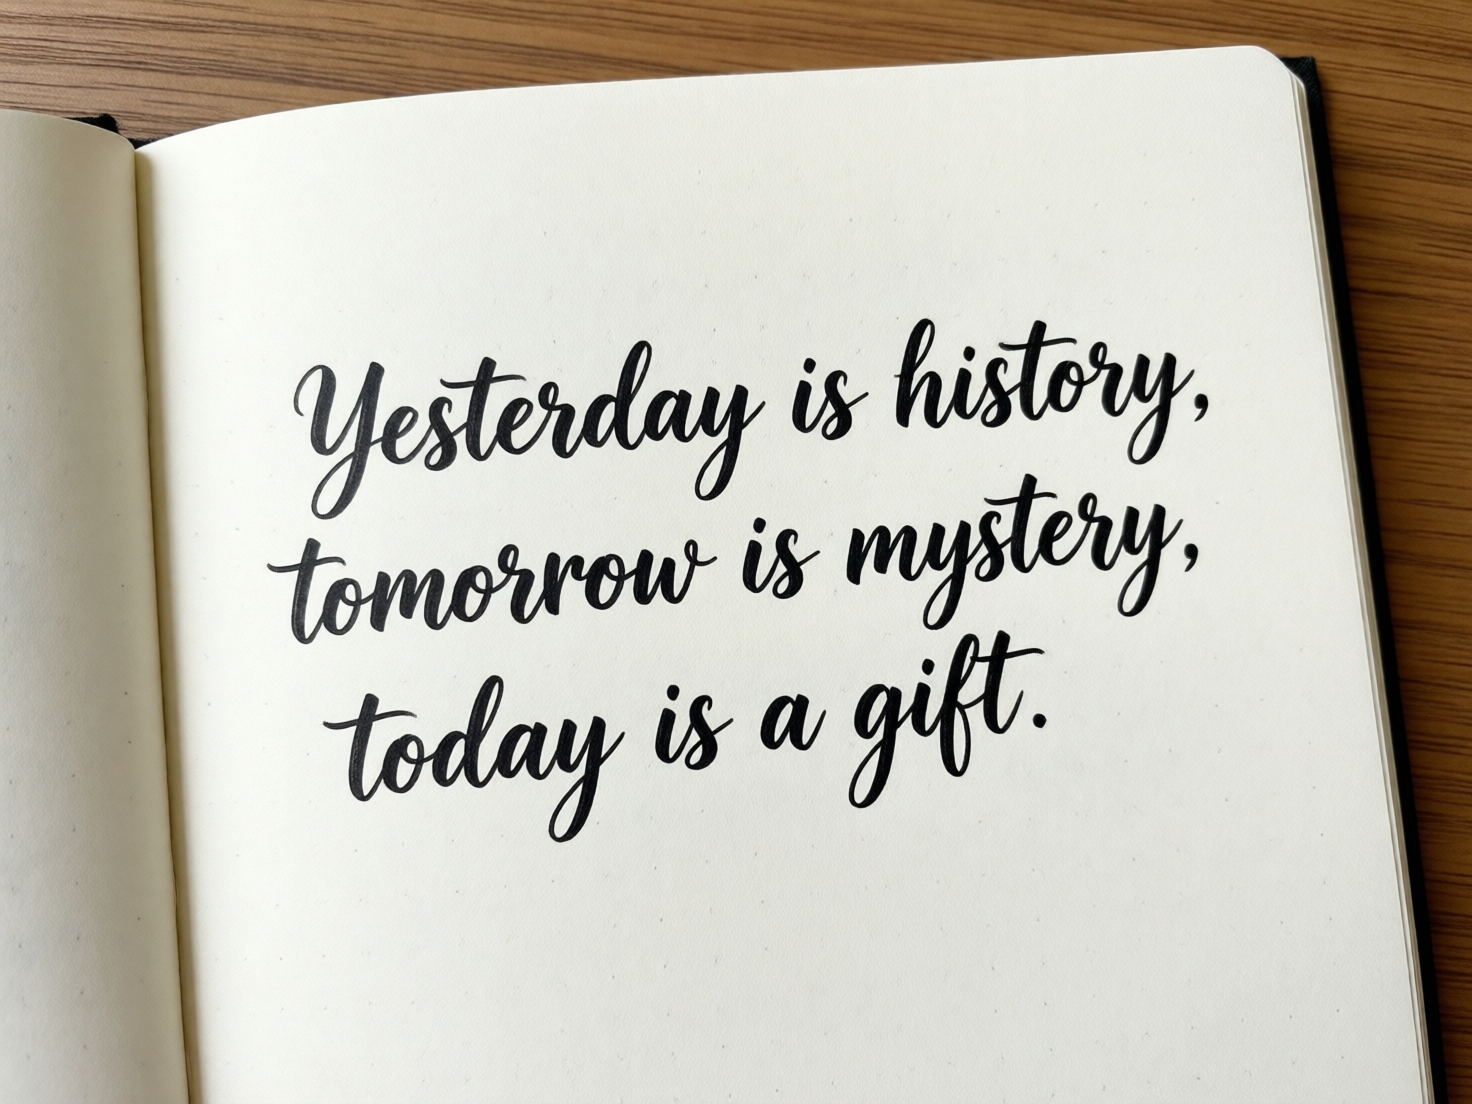 Yesterday is history,
tomorrow is mystery,
today is a gift.